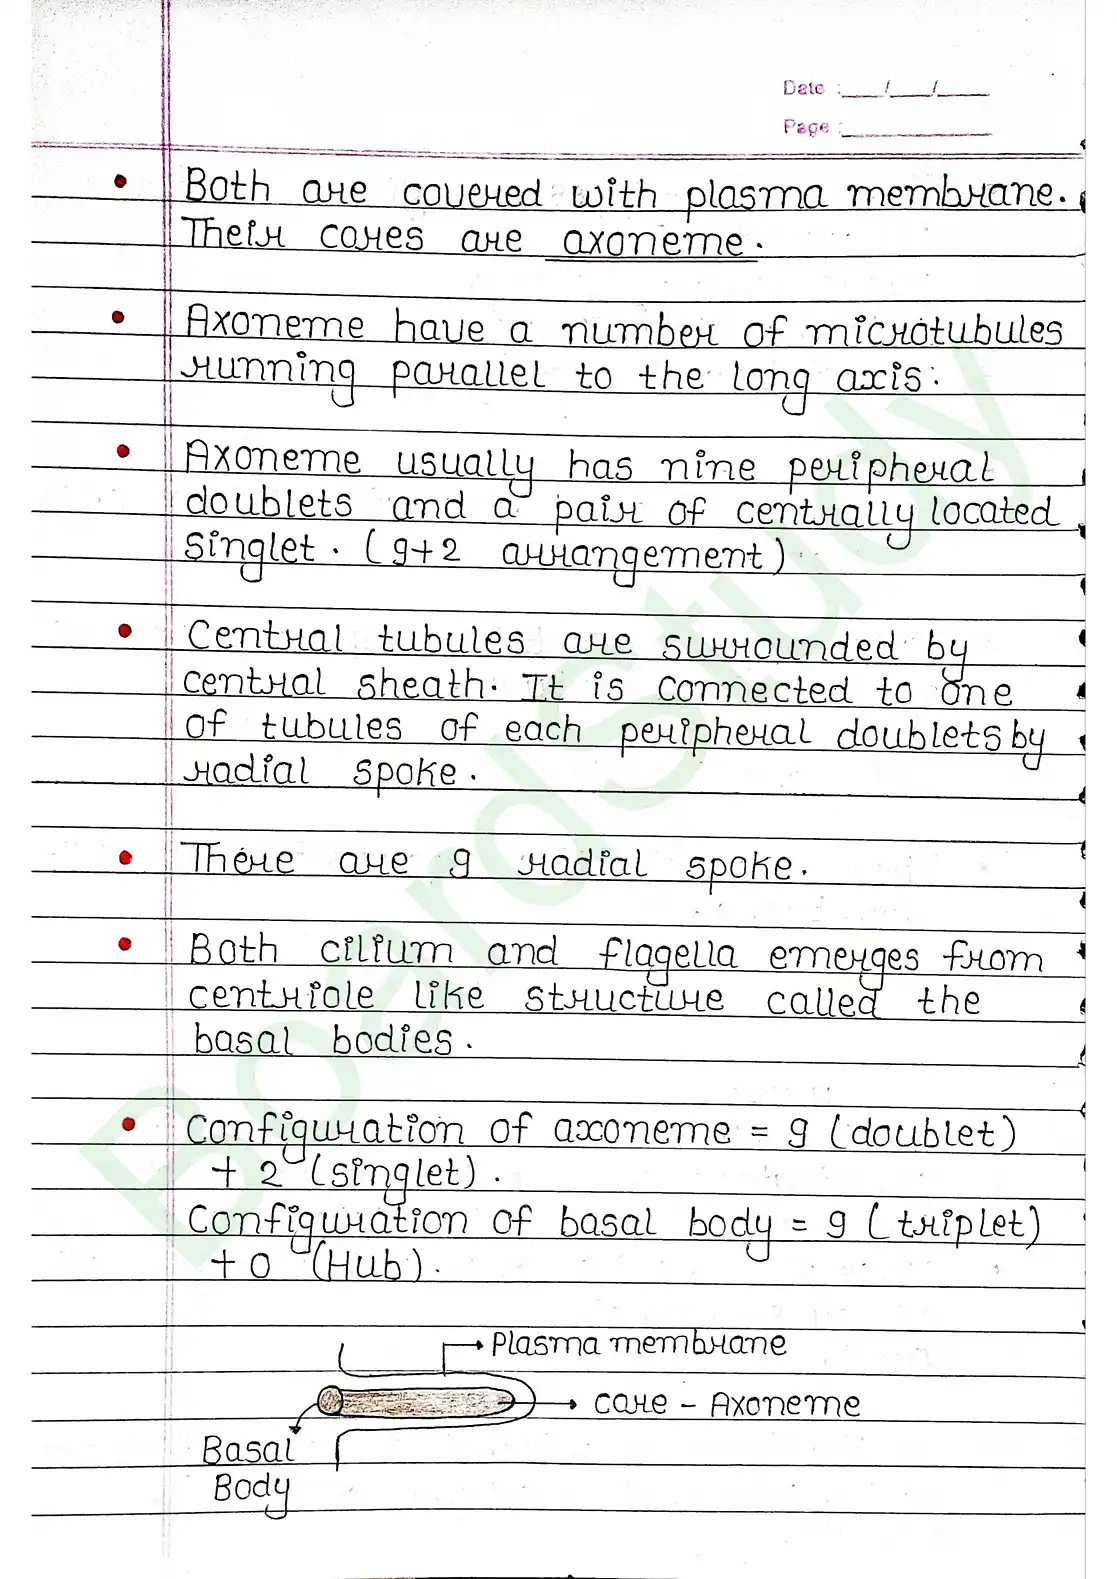 Date : ___/___/____
Page : ____________
• Both are covered with plasma membrane.
Their cores are axoneme.
• Axoneme have a number of microtubules
running parallel to the long axis.
• Axoneme usually has nine peripheral
doublets and a pair of centrally located
singlet. (9+2 arrangement)
• Central tubules are surrounded by
central sheath. It is connected to one
of tubules of each peripheral doublets by
radial spoke.
• There are 9 radial spoke.
• Both cilium and flagella emerges from
centriole like structure called the
basal bodies.
• Configuration of axoneme = 9 (doublet)
+ 2 (singlet).
Configuration of basal body = 9 (triplet)
+ 0 (Hub).
Plasma membrane
core - Axoneme
Basal
Body
BoardStudy